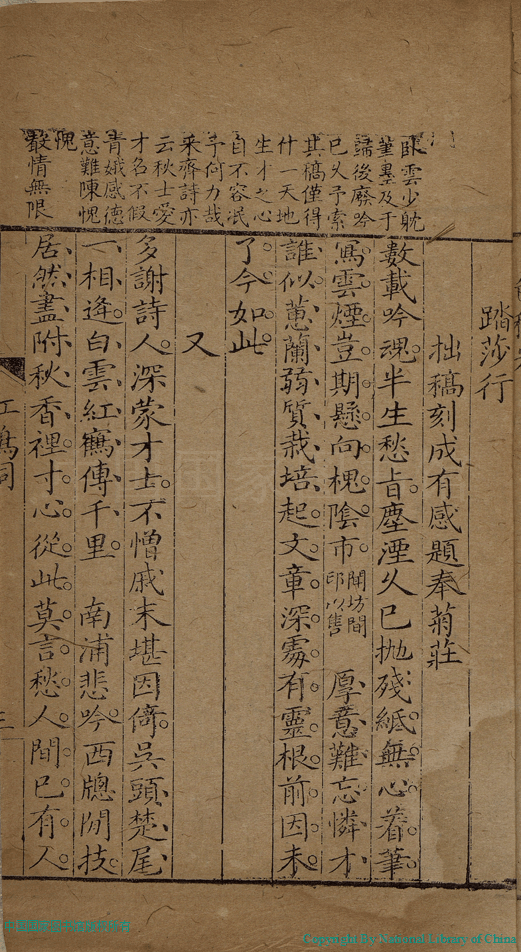 臥雲少躭
筆墨及于
歸後廢吟
已久予索
其稿僅得
什一天地
生才之心
自不容泯
予何力哉
采齊詩亦
云秋士愛
才名不假
青娥感德
意難陳愧
愧
最情無限
踏莎行
拙稿刻成有感題奉菊莊
數載吟魂半生愁旨塵湮久已抛殘紙無心着筆
寫雲煙豈期懸向槐陰市聞坊間印以售厚意難忘憐才
誰似蕙蘭弱質栽培起文章深處有靈根前因未
了今如此
又
多謝詩人深蒙才士不憎戚末堪因倚吳頭楚尾
一相逄白雲紅鶴傳千里 南浦悲吟西牕閒技
居然盡附秋香裡寸心從此莫言愁人間已有人
三
Copyright By National Library of China